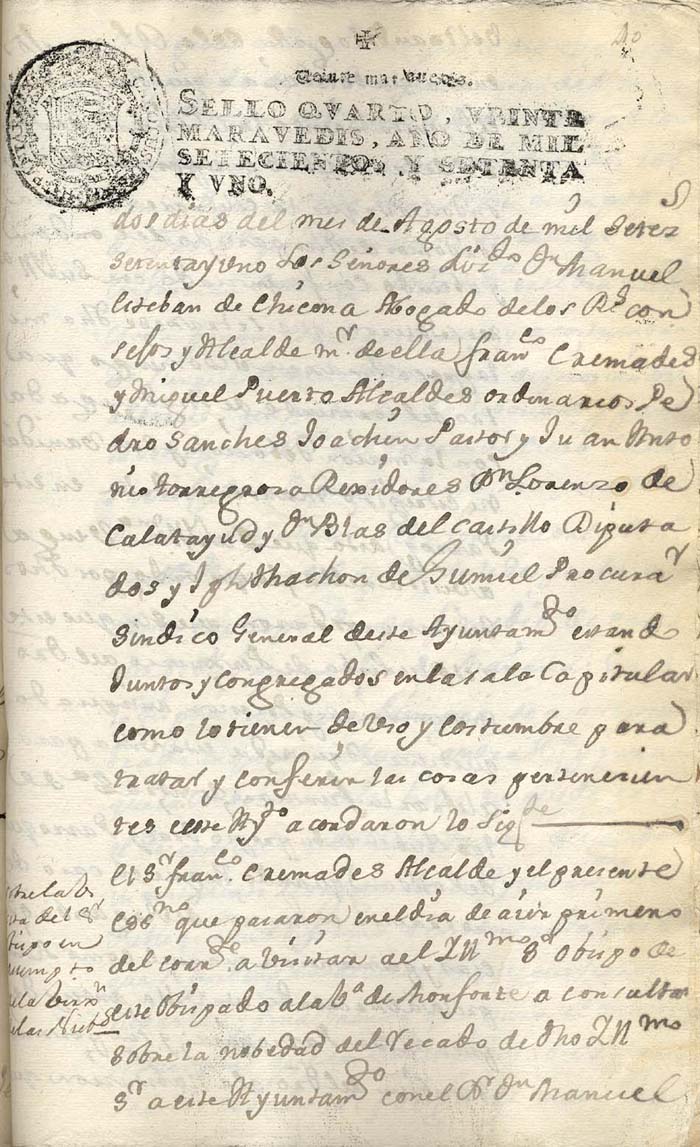 40
Veinte maravedis.
SELLO QVARTO, VEINTE
MARAVEDIS, AÑO DE MIL
SETECIENTOS Y SETENTA
Y VNO.
dos dias del mes de Agosto de mil setez.s
setenta y uno Los Señores Liz.do Dn Manuel
Esteban de Chicona Abogado delos R.s con
sejos y Alcalde m.r de ella fran.co Cremades
y Miguel Puerto Alcaldes ordinarios Pe
dro Sanches Joachin Pastor y Juan Anto
nio torregrosa Rexidores Dn Lorenzo de
Calatayud y Dn Blas del Castillo Diputa
dos y Machon de Gumiel Procura.r
Sindico General deste Ayuntam.to estando
Juntos y congregados enla sala Capitular
como lo tienen de Uso y Costumbre para
tratar y conferir las cosas pertenecien
tes a este Ay.to acordaron lo Sig.te
El S.r fran.co Cremades Alcalde y el presente
Ess.no que pasaron en el dia de aier primero
del corr.te a visitar a el Ill.mo S.r Obispo de
este Obispado ala V.a de Monforte a consultar
Sobre la nobedad del recado de dho Ill.mo
S.r a este Ayuntam.to con el D.r Dn Manuel
del S.r
Obispo en
dela Virg.n
delas Nieb.s